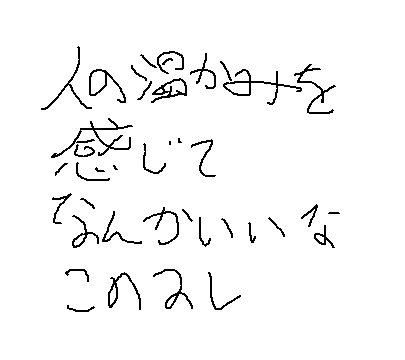 人の温かみを
感じて
なんかいいな
このスレ